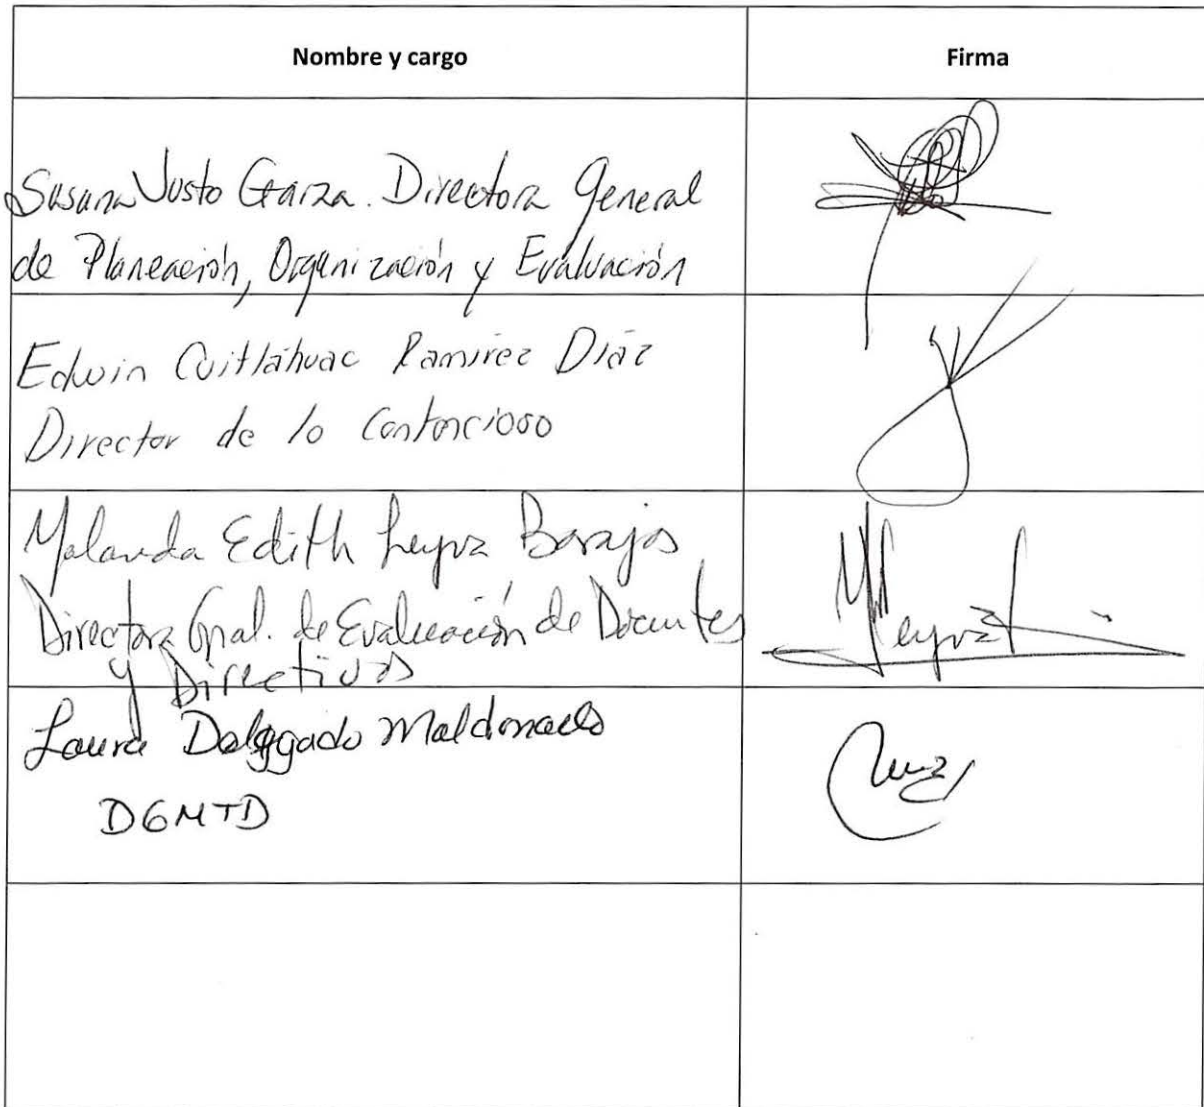 Nombre y cargo
Firma
Susana Justo Garza. Directora General
de Planeación, Organización y Evaluación
Edwin Cuitláhuac Ramírez Díaz
Director de lo Contencioso
Yolanda Edith Leyva Barajas
Directora Gral. de Evaluación de Docentes
y Directivos
MLeyva
Laura Delgado Maldonado
DGMTD